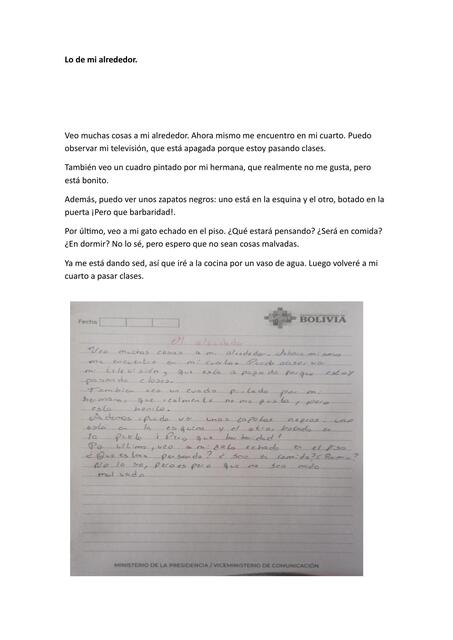 Lo de mi alrededor.
Veo muchas cosas a mi alrededor. Ahora mismo me encuentro en mi cuarto. Puedo
observar mi televisión, que está apagada porque estoy pasando clases.
También veo un cuadro pintado por mi hermana, que realmente no me gusta, pero
está bonito.
Además, puedo ver unos zapatos negros: uno está en la esquina y el otro, botado en la
puerta ¡Pero que barbaridad!.
Por último, veo a mi gato echado en el piso. ¿Qué estará pensando? ¿Será en comida?
¿En dormir? No lo sé, pero espero que no sean cosas malvadas.
Ya me está dando sed, así que iré a la cocina por un vaso de agua. Luego volveré a mi
cuarto a pasar clases.
Fecha
BOLIVIA
Mi alrededor
Veo muchas cosas a mi alrededor. Ahora mismo
me encuentro en mi cuarto. Puedo observar
mi televisión, que esta apagada porque estoy
pasando clases.
Tambien veo un cuadro pintado por mi
hermana, que realmente no me gusta, pero
esta bonito.
Ademas, puedo ver unos zapatos negros uno
esta en la esquina y el otro, botado en
la puerta ¡Pero que barbaridad!
Por ultimo, veo a mi gato echado en el piso
¿Que estara pensando? ¿Sera en comida?
No lo se, pero espero que no sea nada
malvado
MINISTERIO DE LA PRESIDENCIA / VICEMINISTERIO DE COMUNICACIÓN